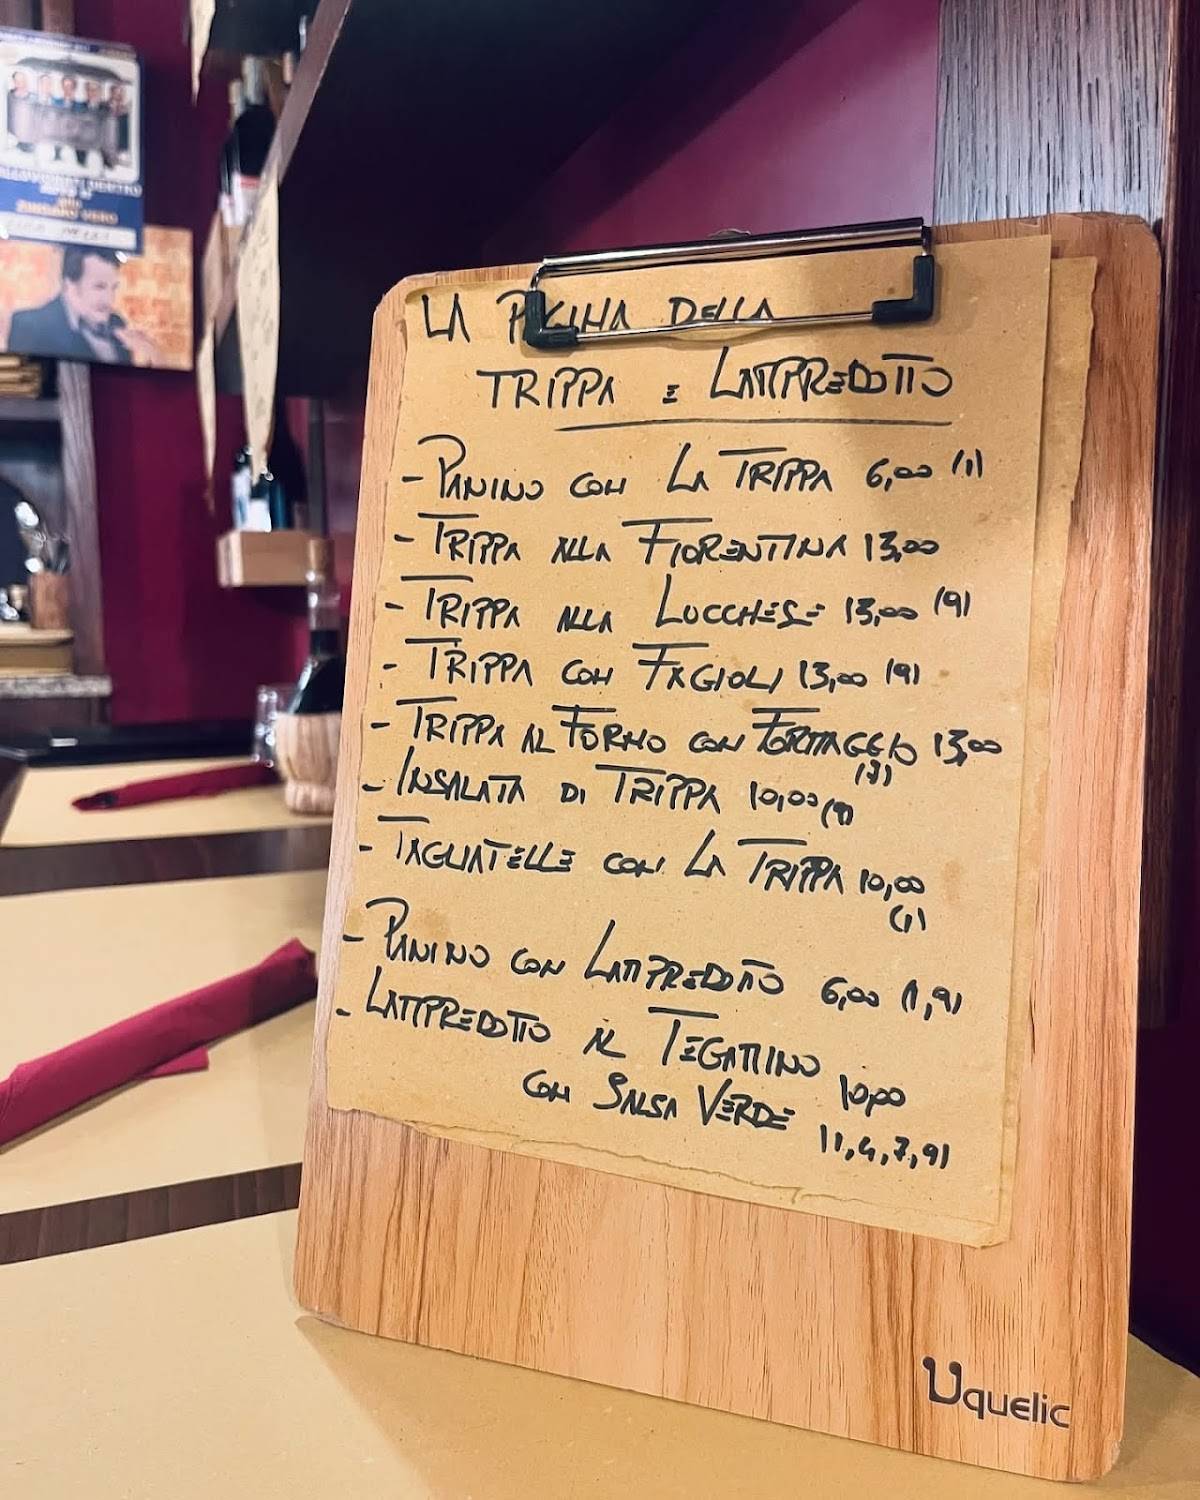 ZINGARO VERO
LA PAGINA DELLA
TRIPPA E LAMPREDOTTO
- PANINO CON LA TRIPPA 6,00 (1)
- TRIPPA ALLA FIORENTINA 13,00
- TRIPPA ALLA LUCCHESE 13,00 (9)
- TRIPPA CON FAGIOLI 13,00 (9)
- TRIPPA AL FORNO CON FORMAGGIO 13,00
(7)
- INSALATA DI TRIPPA 10,00 (9)
- TAGLIATELLE CON LA TRIPPA 10,00
(1)
- PANINO CON LAMPREDOTTO 6,00 (1,9)
- LAMPREDOTTO AL TEGAMINO
CON SALSA VERDE 10,00
(1,4,7,9)
Uquelic